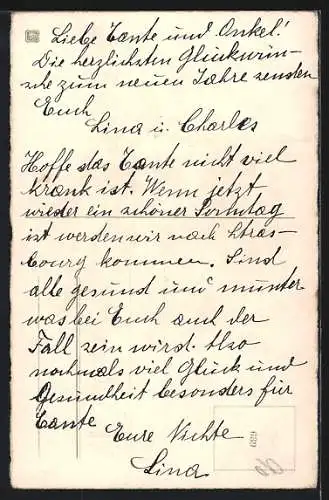 Liebe Tante und Onkel!
Die herzlichsten Glückwün-
sche zum neuen Jahre senden
Euch
Lina u. Charles
Hoffe das Tante nicht viel
krank ist. Wenn jetzt
wieder ein schöner Sonntag
ist werden wir nach Stras-
bourg kommen. Sind
alle gesund und munter
was bei Euch auch der
Fall sein wird. Also
nochmals viel Glück und
Gesundheit besonders für
Tante
Eure Nichte
Lina